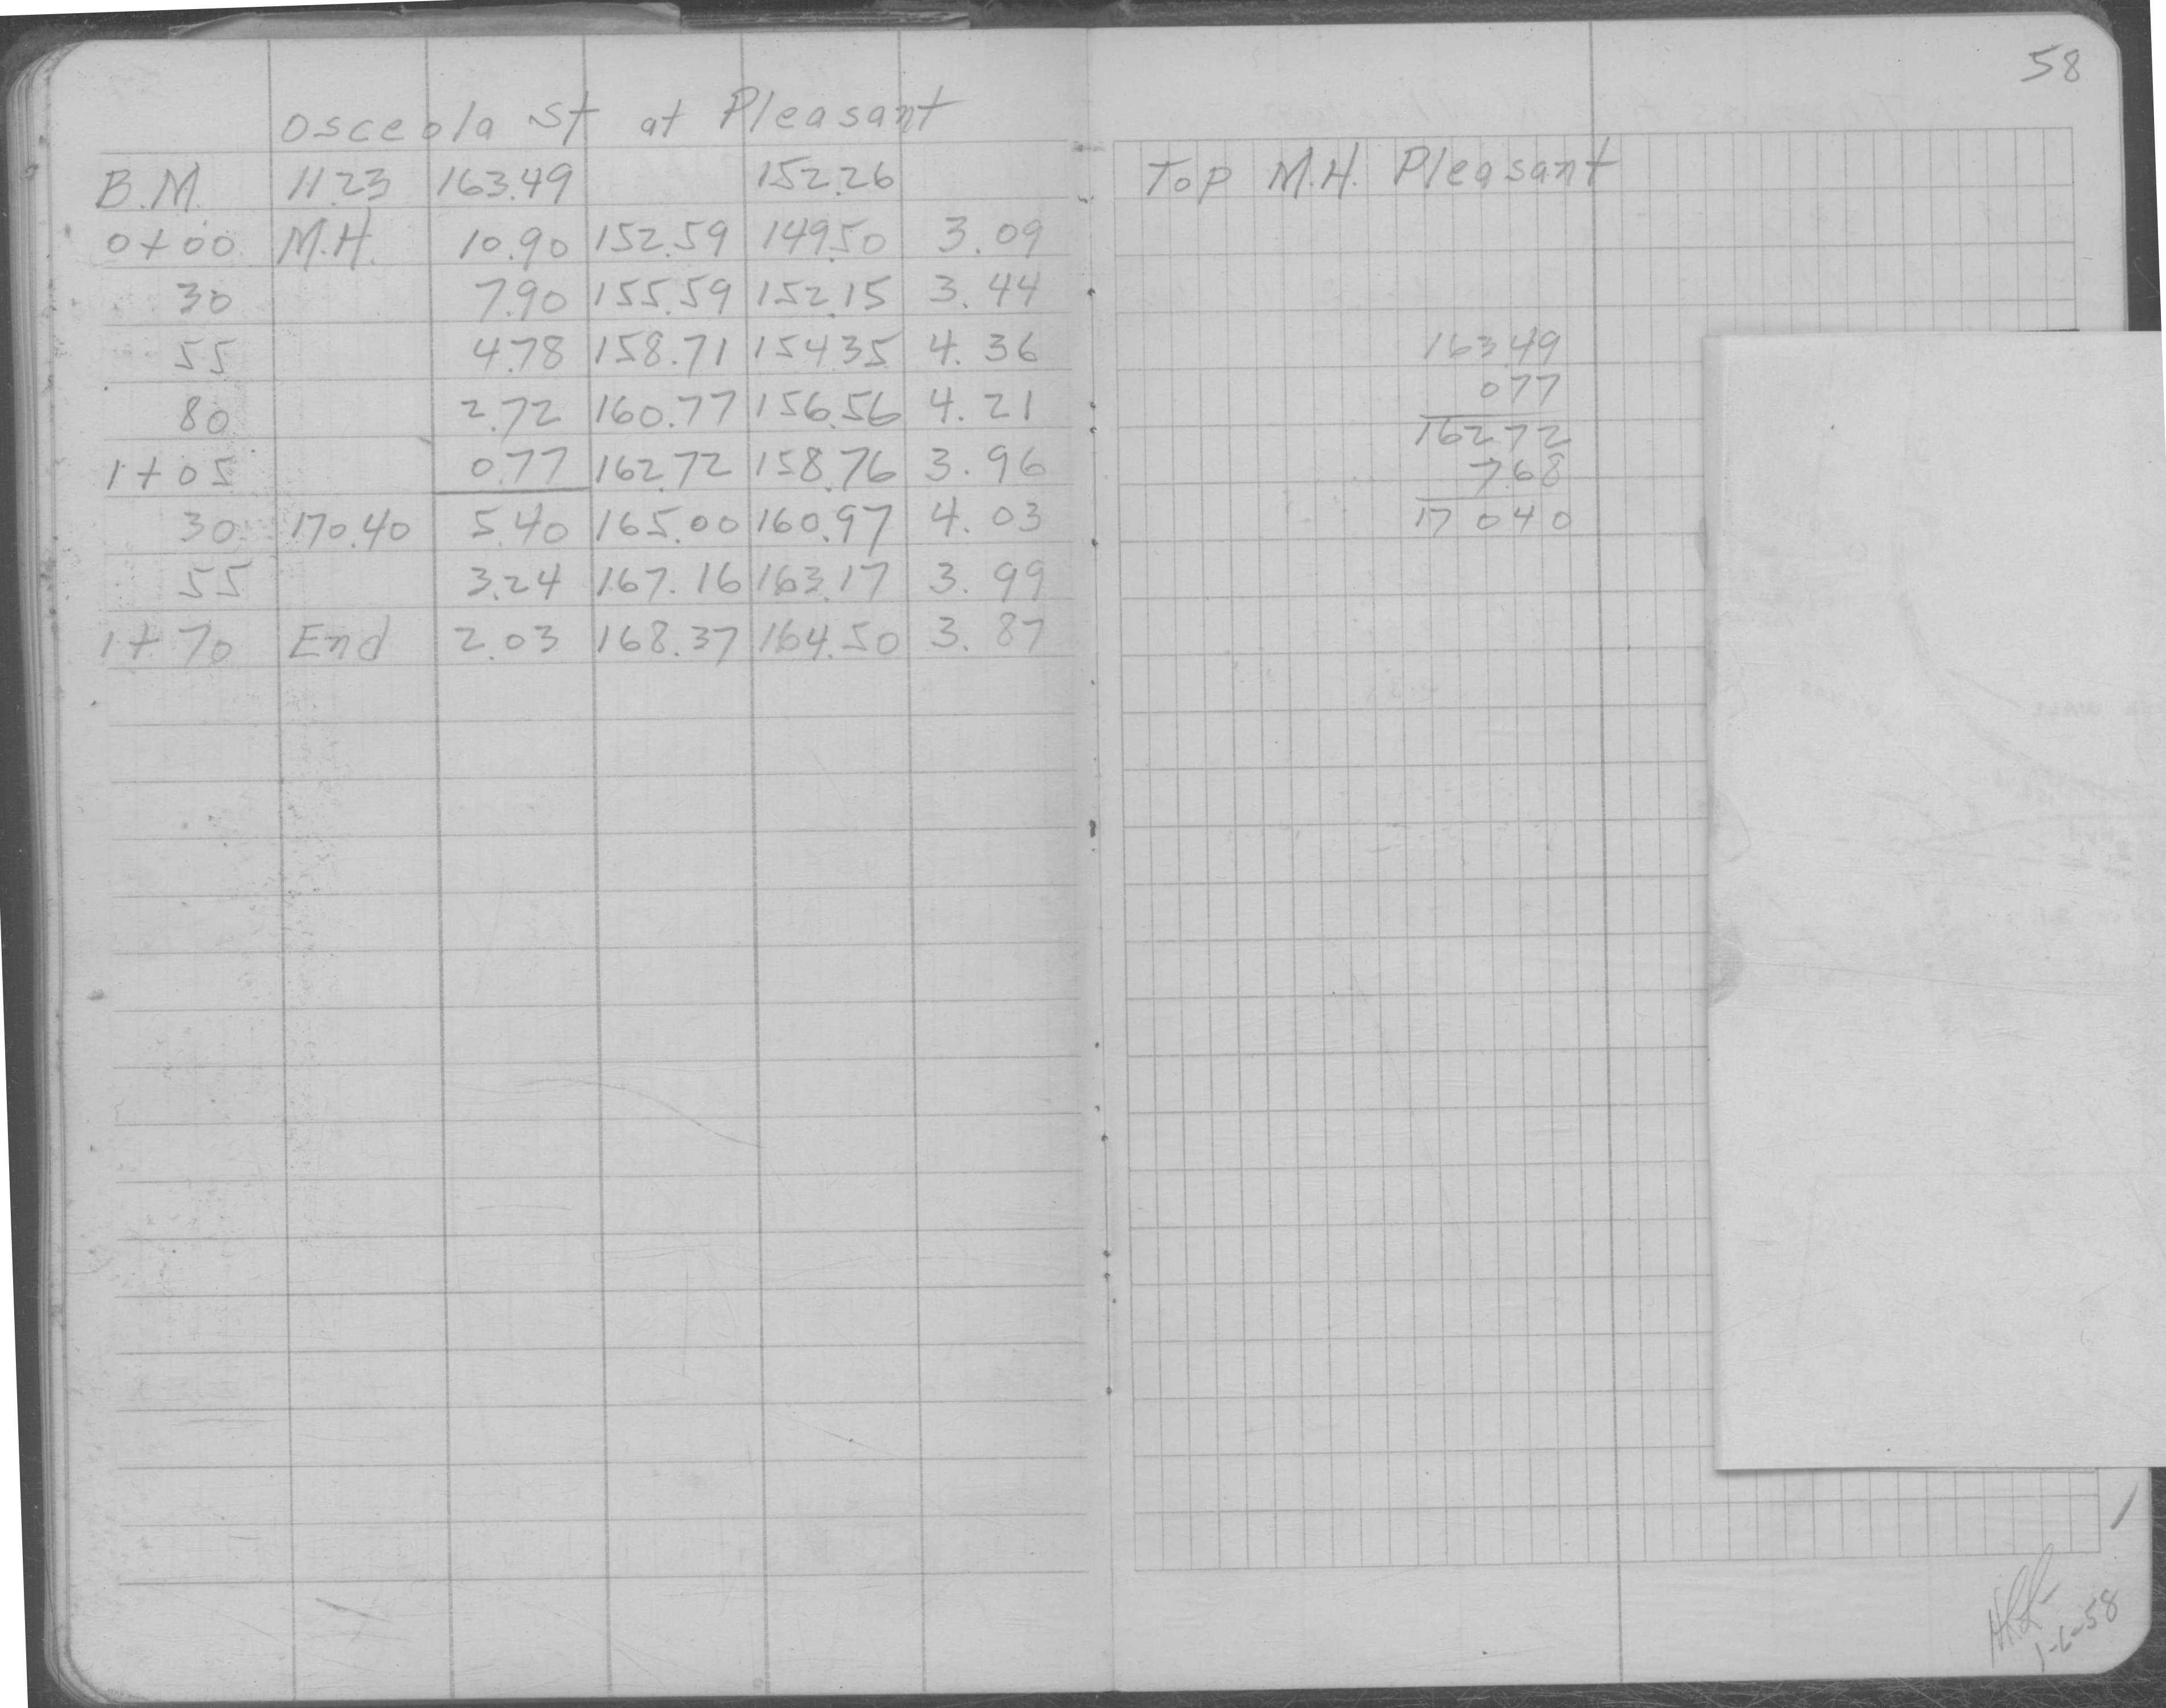 Osceola St at Pleasant
B.M. 11.23 163.49 152.26
0+00 M.H. 10.90 152.59 149.50 3.09
30 7.90 155.59 152.15 3.44
55 4.78 158.71 154.35 4.36
80 2.72 160.77 156.56 4.21
1+05 0.77 162.72 158.76 3.96
30 170.40 5.40 165.00 160.97 4.03
55 3.24 167.16 163.17 3.99
1+70 End 2.03 168.37 164.50 3.87
58
Top M.H. Pleasant
163.49
077
16272
7.68
17040
1-6-58